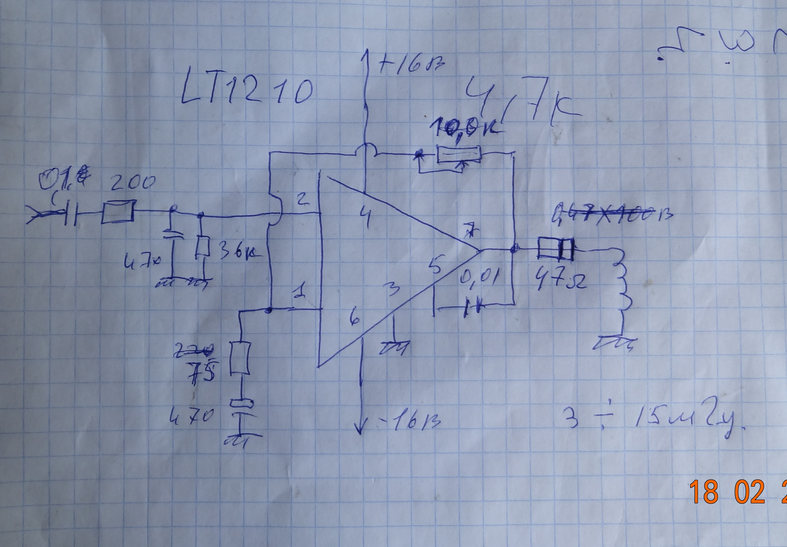 LT1210
+16В
4,7к
10,0к
0,1
200
2
4
7
0,47х100В
470
36к
47Ω
5
0,01
3
1
6
220
75
470
-16В
3 ÷ 15 мГц.
18 02 2